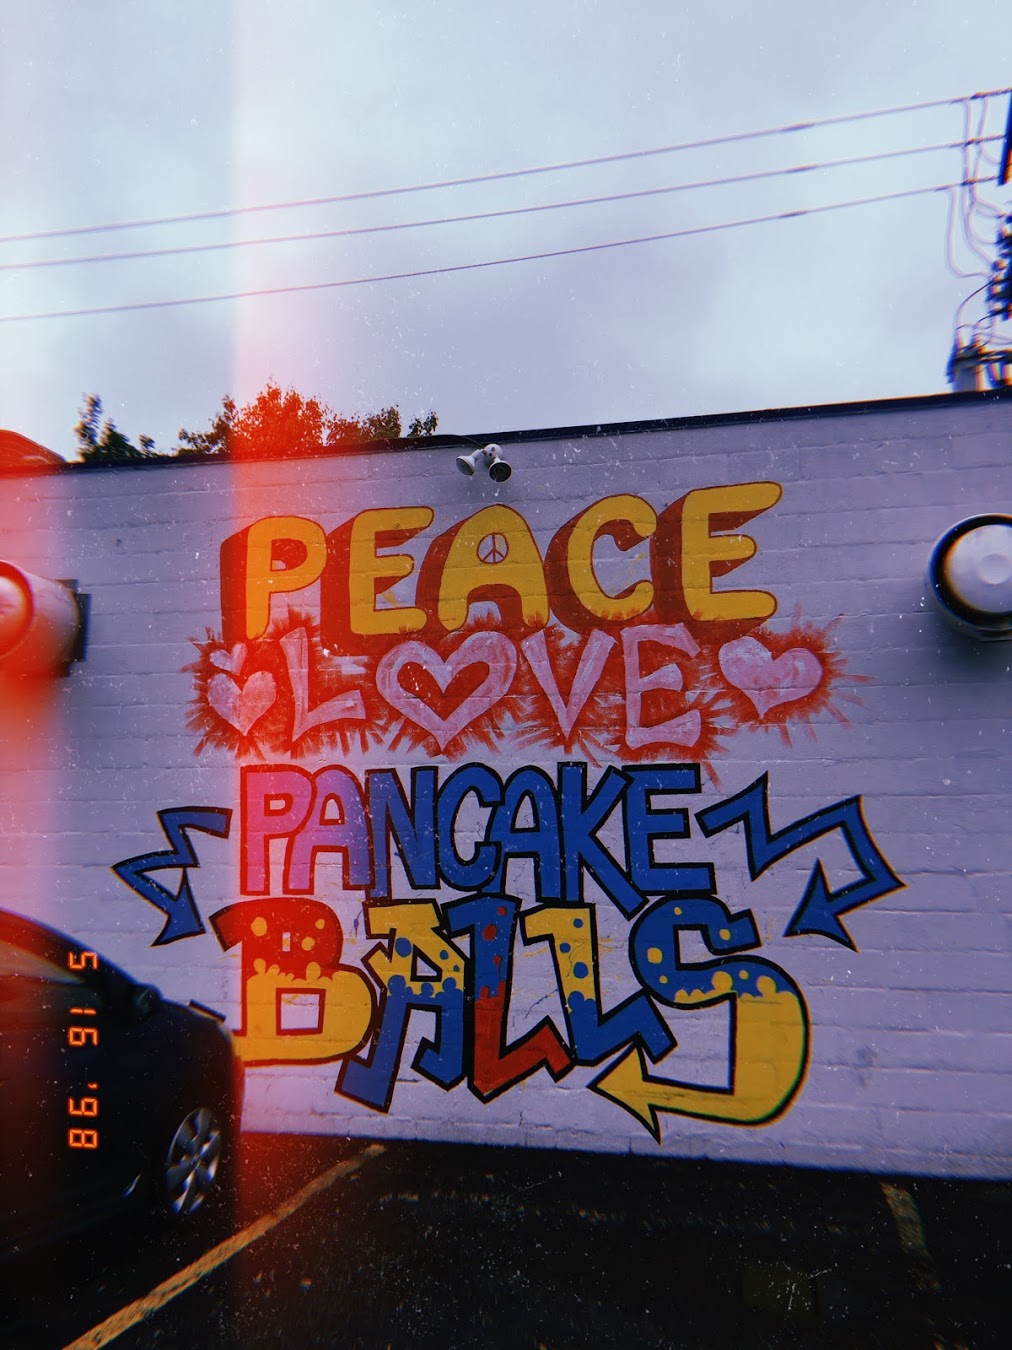 PEACE
LOVE
PANCAKE
BALLS
5 16 '98